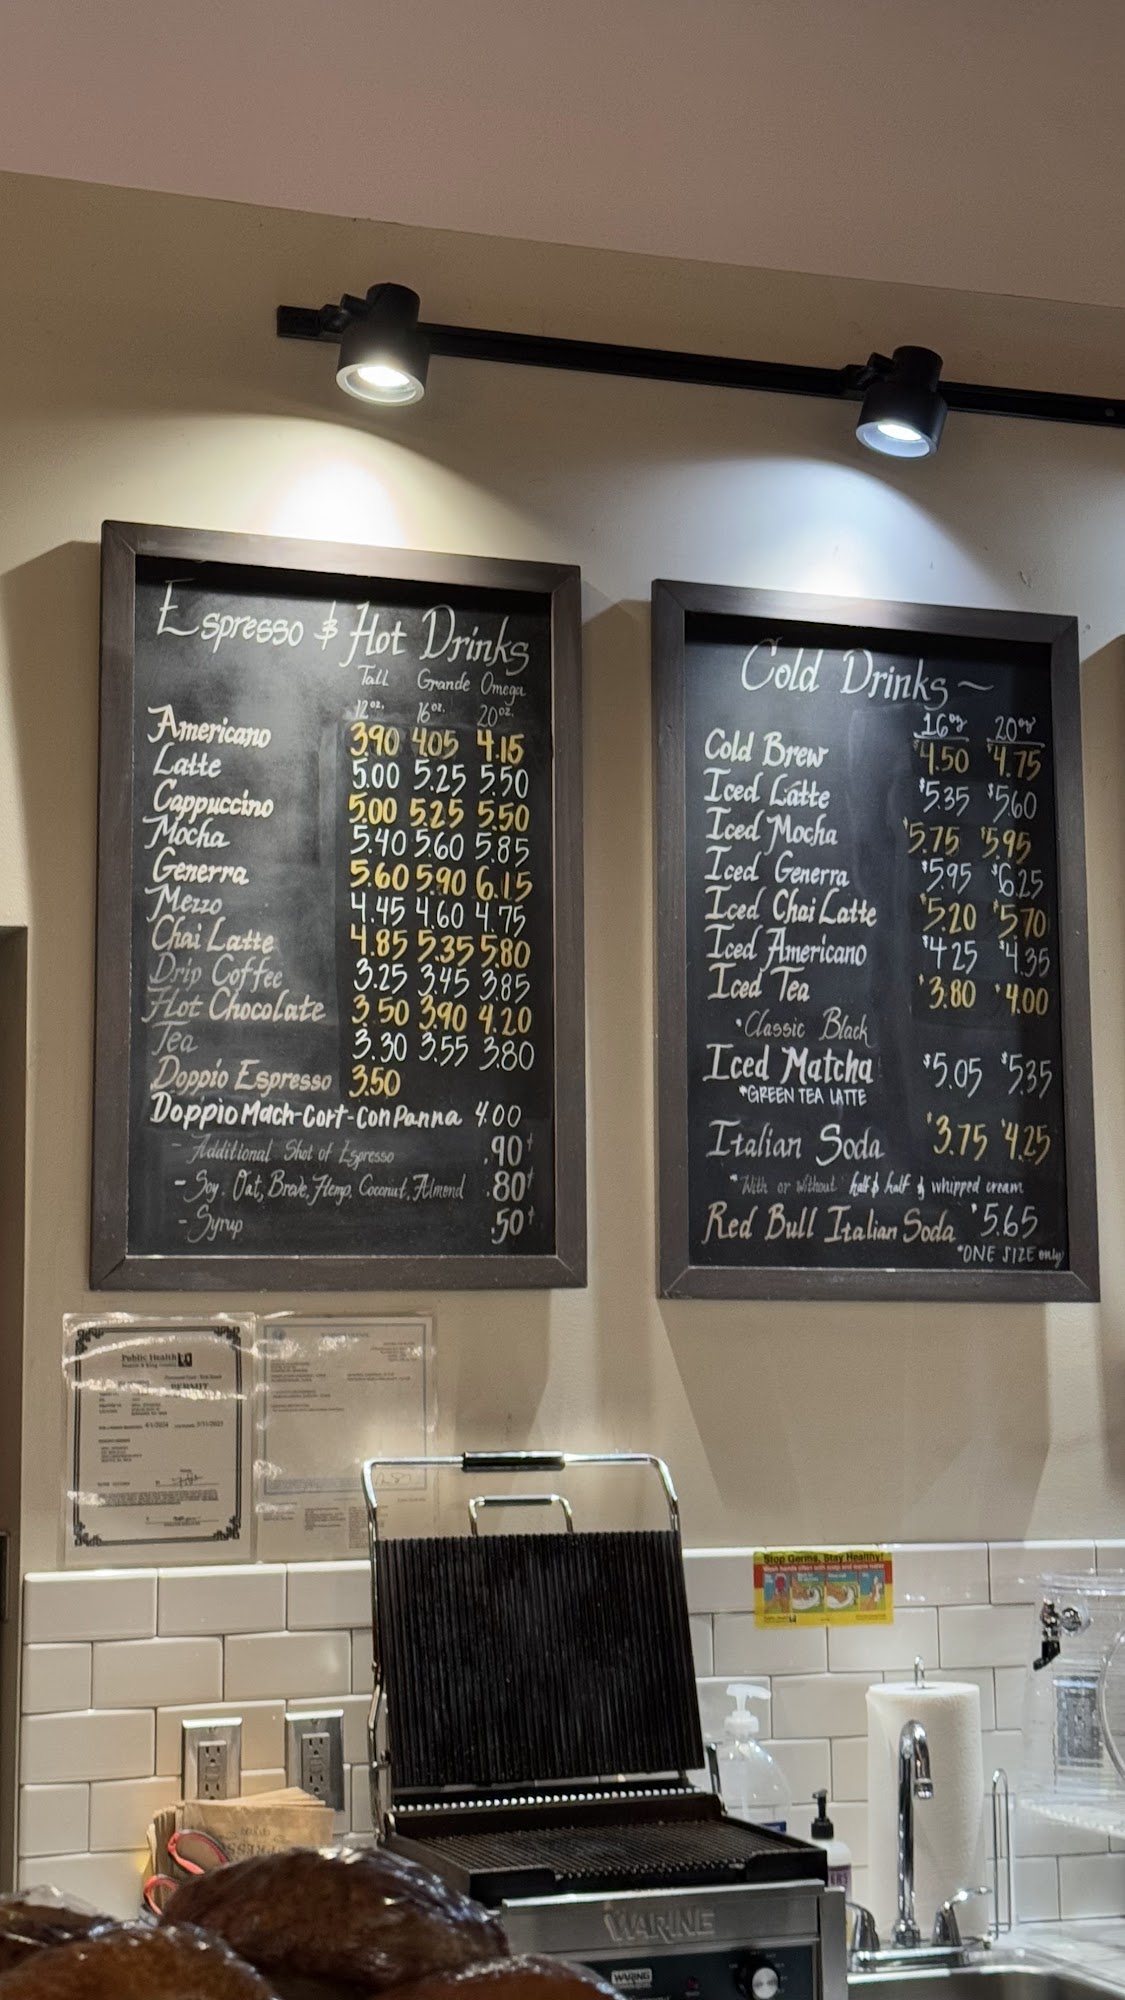 Espresso & Hot Drinks
Tall Grande Omega
12oz. 16oz. 20oz.
Americano 3.90 4.05 4.15
Latte 5.00 5.25 5.50
Cappuccino 5.00 5.25 5.50
Mocha 5.40 5.60 5.85
Generra 5.60 5.90 6.15
Mezzo 4.45 4.60 4.75
Chai Latte 4.85 5.35 5.80
Drip Coffee 3.25 3.45 3.85
Hot Chocolate 3.50 3.90 4.20
Tea 3.30 3.55 3.80
Doppio Espresso 3.50
Doppio Mach-Cort-Con Panna 4.00
- Additional Shot of Espresso .90¢
- Soy, Oat, Breve, Hemp, Coconut, Almond .80¢
- Syrup .50¢
Cold Drinks~
16oz 20oz
Cold Brew $4.50 $4.75
Iced Latte $5.35 $5.60
Iced Mocha $5.75 $5.95
Iced Generra $5.95 $6.25
Iced Chai Latte $5.20 $5.70
Iced Americano $4.25 $4.35
Iced Tea $3.80 $4.00
*Classic Black
Iced Matcha $5.05 $5.35
*GREEN TEA LATTE
Italian Soda $3.75 $4.25
*With or without half & half & whipped cream
Red Bull Italian Soda $5.65
*ONE SIZE only
Public Health
Seattle & King County
PERMIT
Stop Germs, Stay Healthy!
Wash hands often with soap and warm water
WARING
WARING